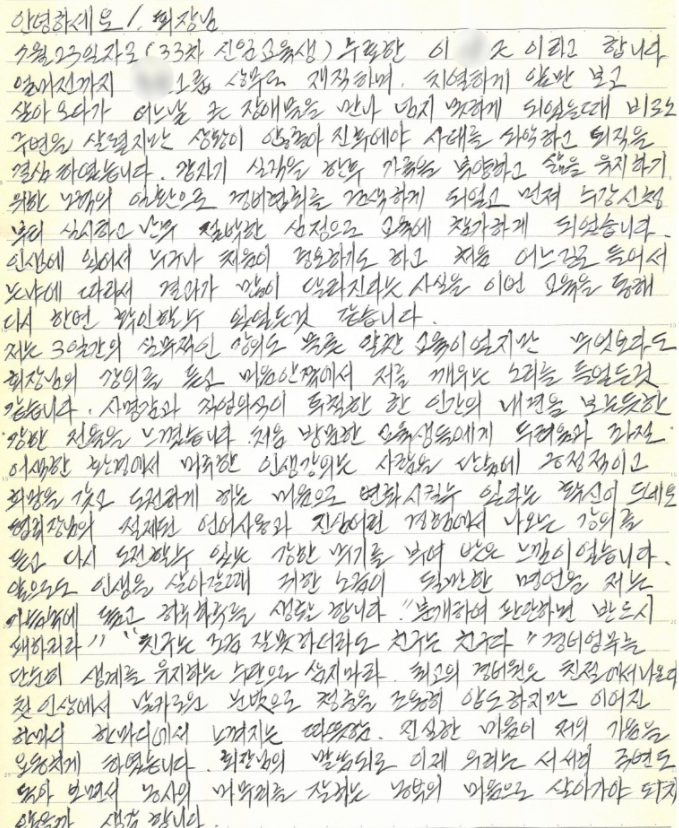 안녕하세요!. 회장님
7월 23일자로(33차 신임교육생) 수료한 이 호 라고 합니다
얼마전까지 그룹 상무로 재직하며, 치열하게 앞만 보고
살아 오다가 어느날 큰 장애물을 만나 넘지 못하게 되었을때 비로소
주변을 살폈지만 상황이 안좋아 진후에야 사태를 파악하고 퇴직을
결심 하였습니다. 갑자기 실직을 한후 가족을 부양하고 삶을 유지하기
위한 노력의 일환으로 경비협회를 검색하게 되었고 먼저 수강신청
부터 실시하고 난후 절박한 심정으로 교육에 참가하게 되었습니다.
인생에 있어서 누구나 처음이 중요하기도 하고 처음 어느길로 들어서
느냐에 따라서 결과가 많이 달라진다는 사실을 이번 교육을 통해
다시 한번 확인할수 있었든것 같습니다.
저는 3일간의 실무적인 강의도 물론 알찬 교육이었지만 무엇보다도
회장님의 강의를 듣고 마음안쪽에서 저를 깨우는 소리를 들었든것
같습니다. 사명감과 직업의식이 투철한 한 인간의 내면을 보는듯한
강한 전율을 느꼈습니다. 처음 방문한 교육생들에게 두려움과
어색한 환경에서 마주한 인생강의는 사람을 단숨에 긍정적이고
희망을 갖고 도전하게 하는 마음으로 변화시킬수 있다는 확신이 드네요
회장님의 절제된 언어사용과 진실어린 경험에서 나오는 강의를
듣고 다시 도전할수 있는 강한 용기를 부여 받은 느낌이었습니다.
앞으로도 인생을 살아갈때 귀한 소금이 될만한 명언을 저는
가슴속에 담고 하루하루를 생활 합니다. "공개하여 판단하면 반드시
패하리라" "친구는 조금 잘못하더라도 친구는 친구다" 경비업무를
단순히 생계를 유지하는 수단으로 삼지마라. 최고의 경비원은 친절에서나온다
첫 인상에서 날카로운 눈빛으로 청중을 조용히 압도하지만 이어진
한마디 한마디에서 느껴지는 따뜻함. 진실한 마음이 저의 가슴을
요동치게 하였습니다. 회장님의 말씀되로 이제 우리는 서서히 주변도
돌아 보면서 농사의 마무리를 잘하는 농부의 마음으로 살아가야 되지
않을까 생각 합니다.